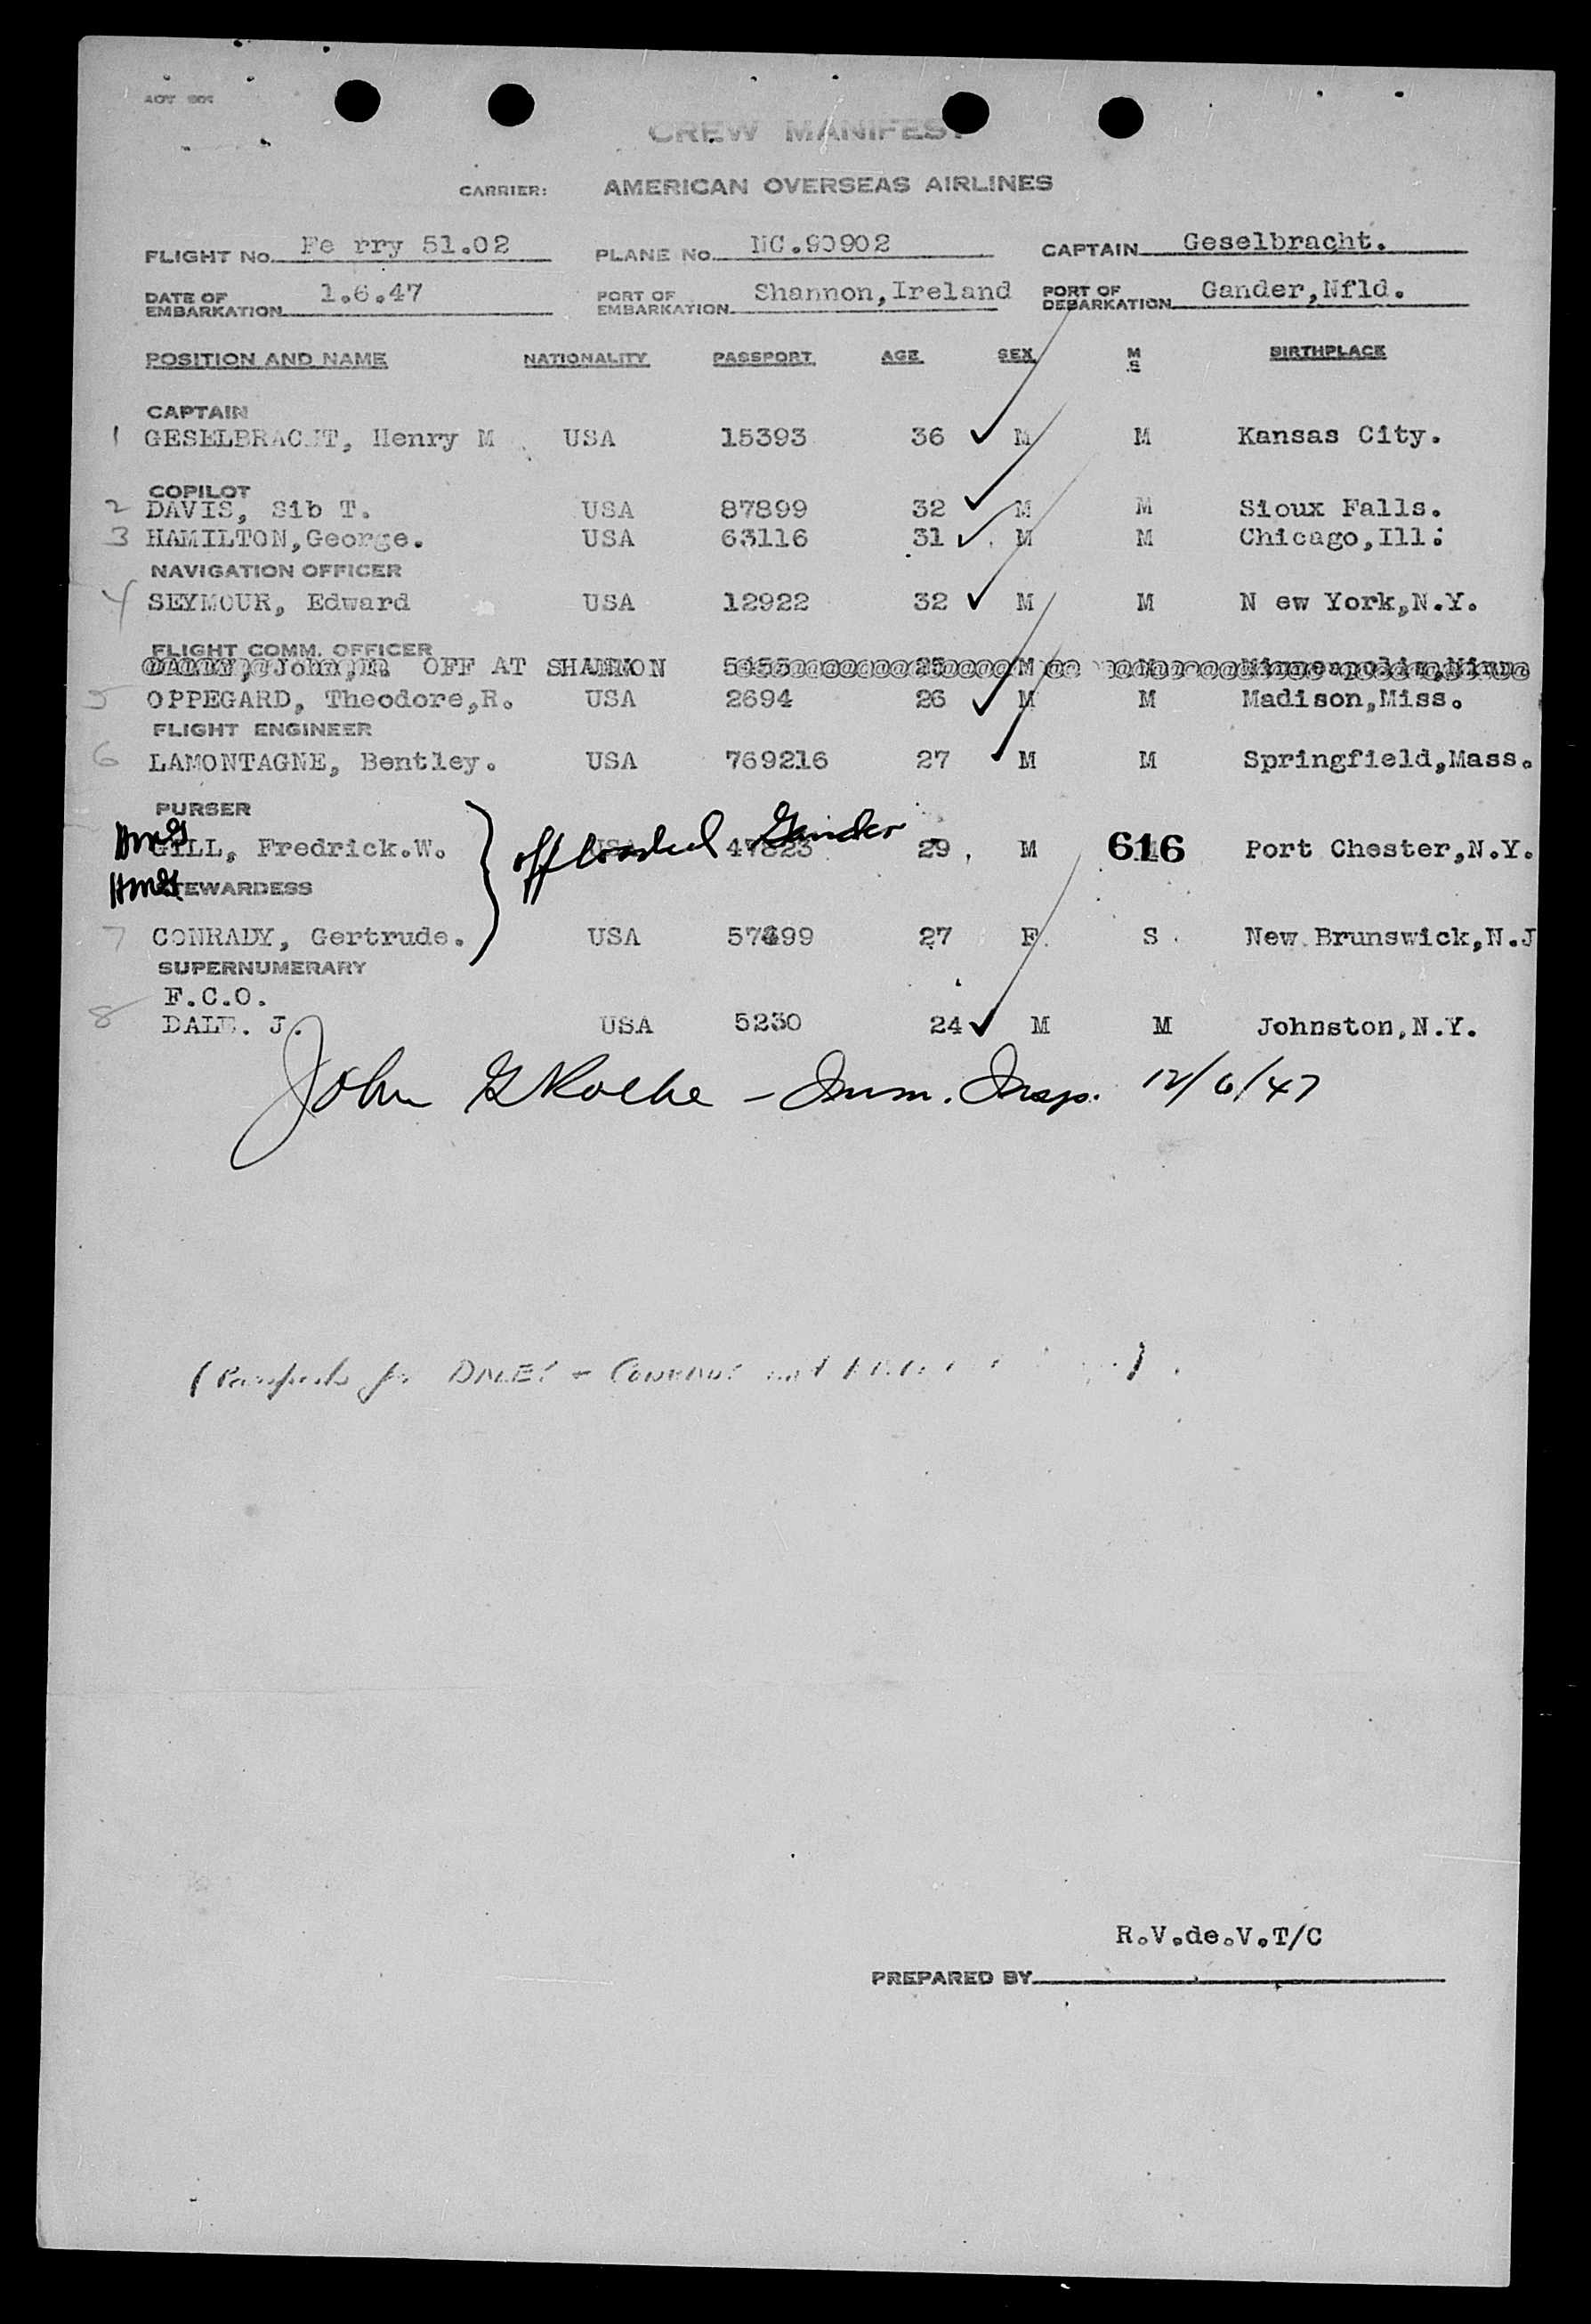 CREW MANIFEST
CARRIER: AMERICAN OVERSEAS AIRLINES
FLIGHT No. Fe rry 51.02 PLANE No. NC.90902 CAPTAIN Geselbracht.
DATE OF EMBARKATION 1.6.47 PORT OF EMBARKATION Shannon,Ireland PORT OF DEBARKATION Gander,Nfld.
POSITION AND NAME NATIONALITY PASSPORT AGE SEX M S BIRTHPLACE
CAPTAIN
1 GESELBRACHT, Henry M USA 15393 36 M M Kansas City.
COPILOT
2 DAVIS, Sib T. USA 87899 32 M M Sioux Falls.
3 HAMILTON,George. USA 63116 31 M M Chicago,Ill:
NAVIGATION OFFICER
4 SEYMOUR, Edward USA 12922 32 M M N ew York,N.Y.
FLIGHT COMM. OFFICER
John OFF AT SHANNON 5453 25 M M Minneapolis,Minn
5 OPPEGARD, Theodore,R. USA 2694 26 M M Madison,Miss.
FLIGHT ENGINEER
6 LAMONTAGNE, Bentley. USA 769216 27 M M Springfield,Mass.
PURSER
HMG GILL, Fredrick.W. offloaded Gander USA 47823 29 M 616 Port Chester,N.Y.
HMG STEWARDESS
7 CONRADY, Gertrude. USA 57499 27 F. S New Brunswick,N.J
SUPERNUMERARY
F.C.O.
8 DALE. J. USA 5230 24 M M Johnston,N.Y.
John G Roche - Imm. Insp. 12/6/47
(Passports for DALEY + CONRADY not
R.V.de.V.T/C
PREPARED BY